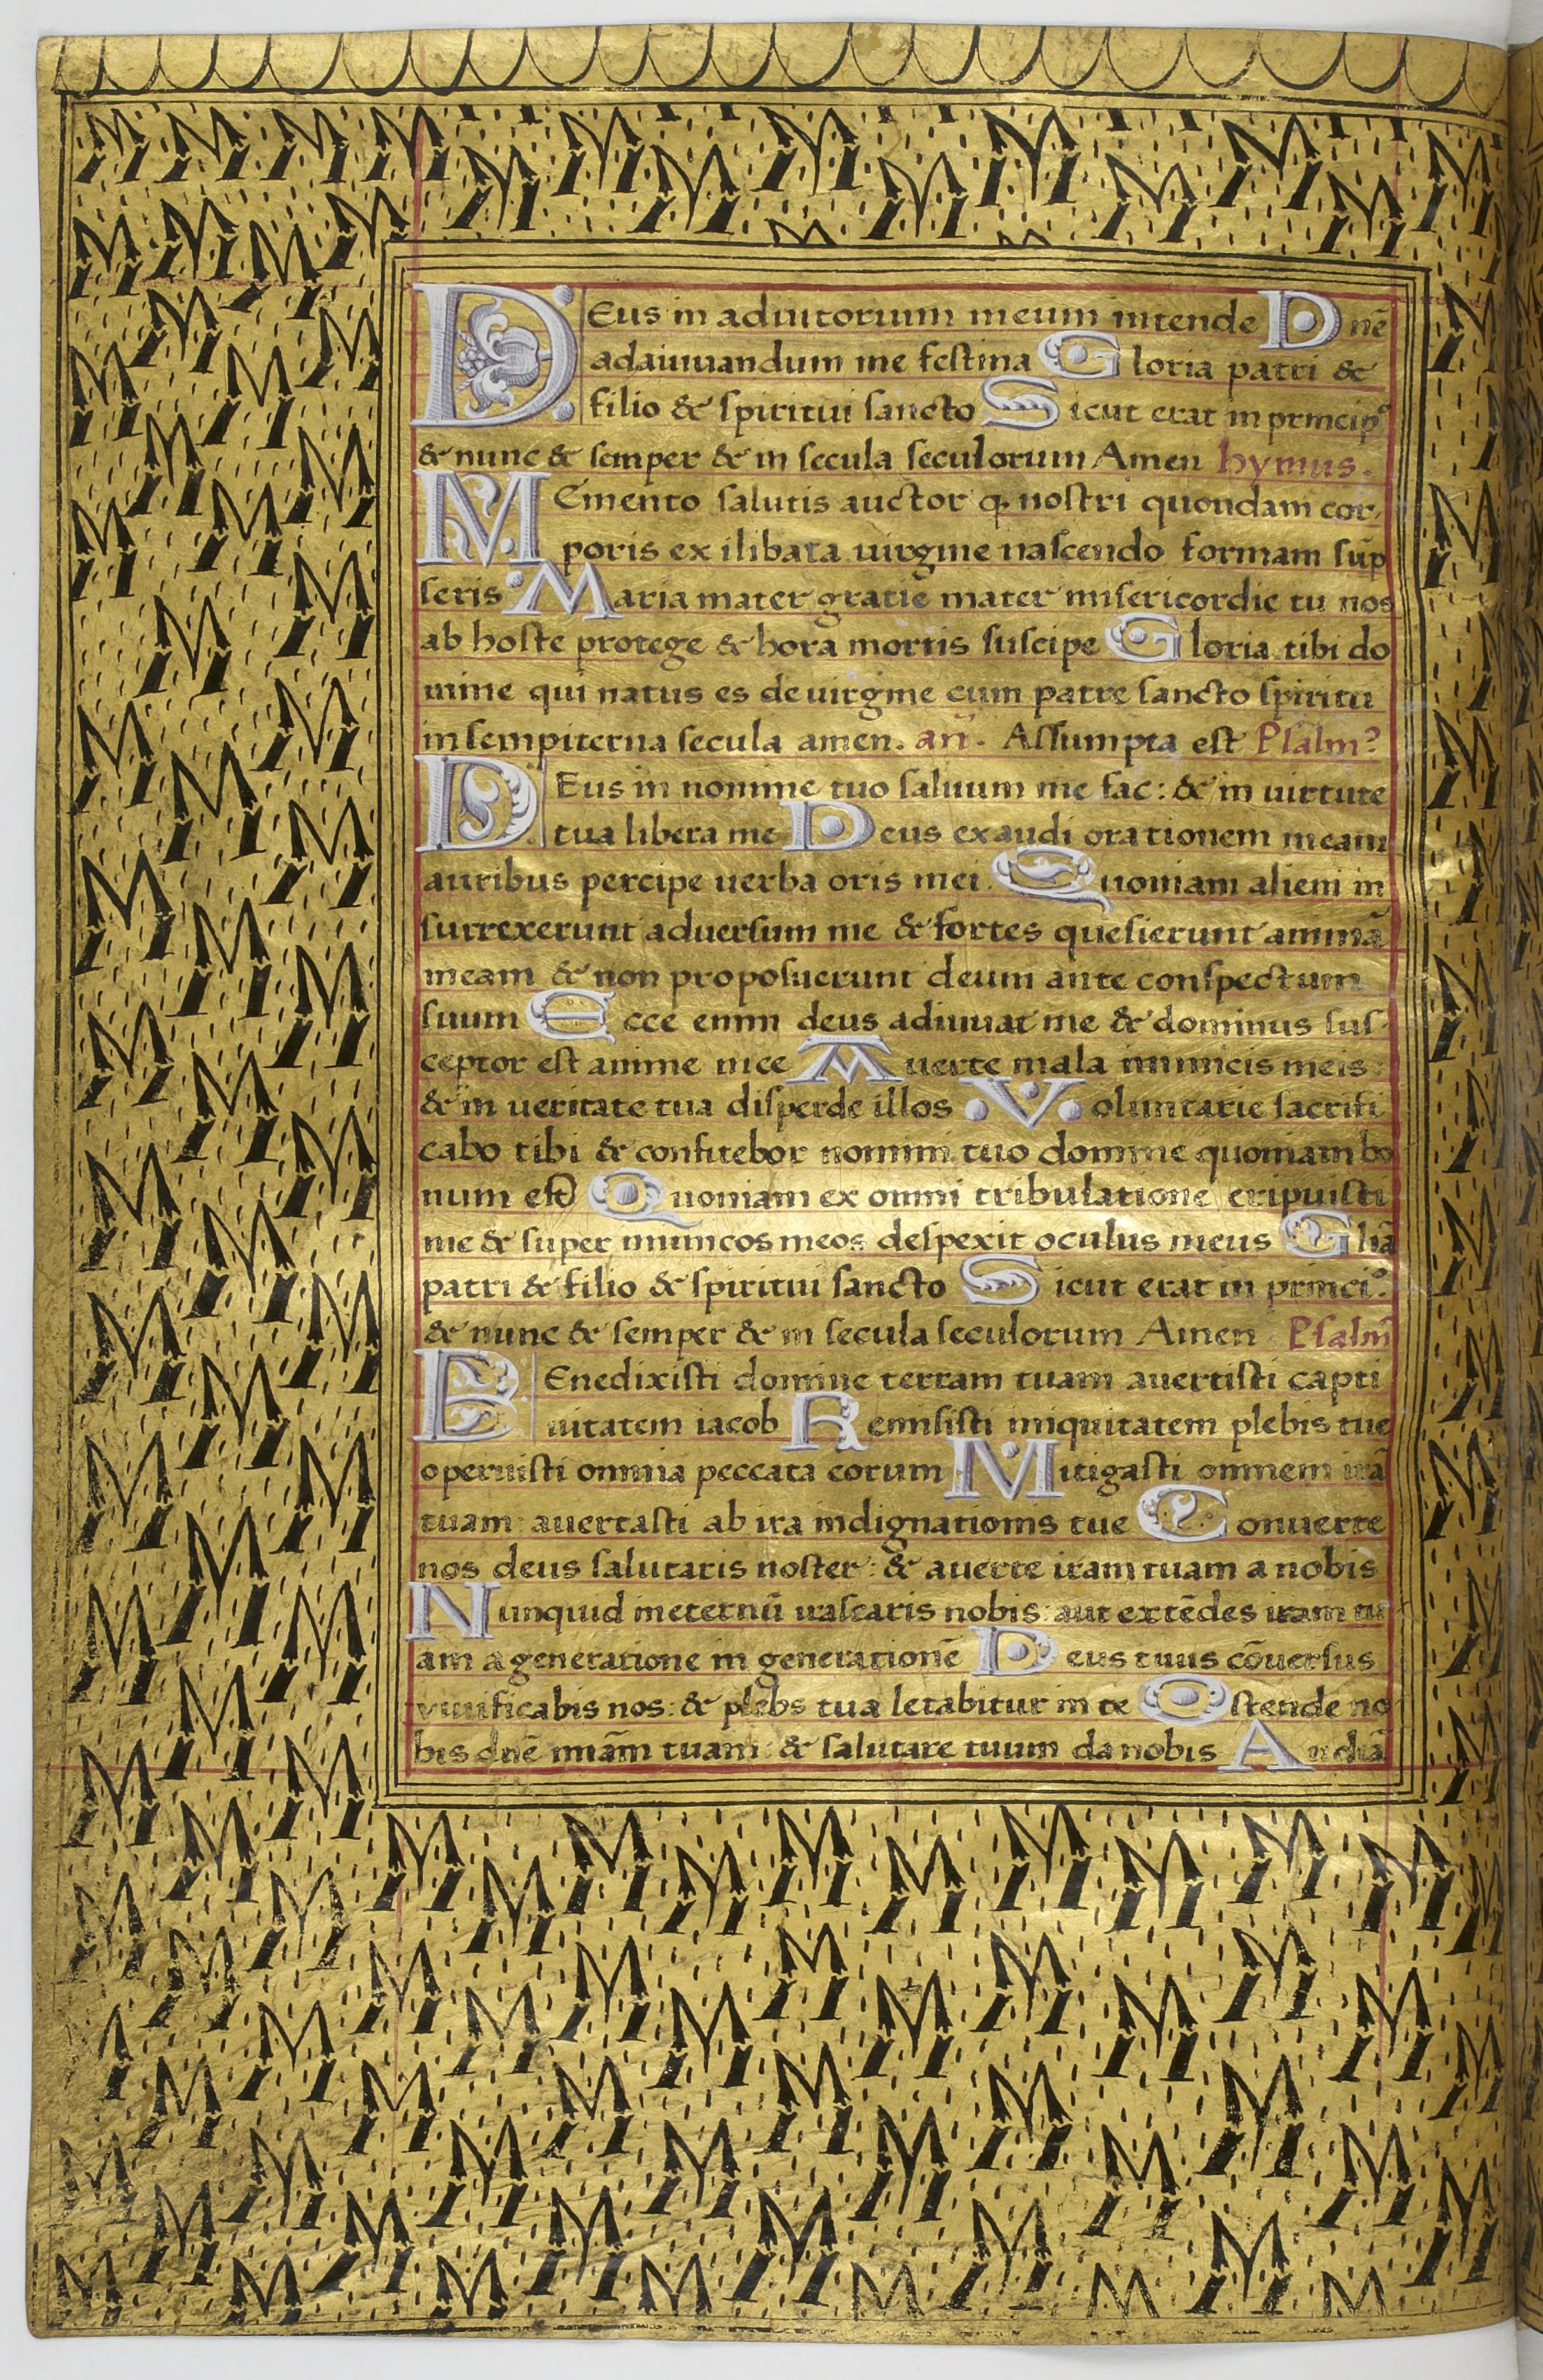 DEus in adiutorium meum intende Dnē
adaiuuandum me festina Gloria patri &
filio & spiritui sancto Sicut erat in principº
& nunc & semper & in secula seculorum Amen hymus.
MEmento salutis auctor q nostri quondam cor-
poris ex ilibata uirgine nascendo formam sūp
seris Maria mater gratie mater misericordie tu nos
ab hoste protege & hora mortis suscipe Gloria tibi do
mine qui natus es de uirgine cum patre sancto spiritu
in sempiterna secula amen. añ. Assumpta est Psalm?
DEus in nomine tuo saluum me fac: & in uirtute
tua libera me Deus exaudi orationem meam
auribus percipe uerba oris mei. Quoniam alieni in
surrexerunt aduersum me & fortes quesierunt animā
meam & non proposuerunt deum ante conspectum
suum Ecce enim deus adiuuat me & dominus sus-
ceptor est anime mee Auerte mala inimicis meis:
& in ueritate tua disperde illos Voluntarie sacrifi
cabo tibi & confitebor nomini tuo domine quoniam bo
num est Quoniam ex omni tribulatione eripuisti
me & super inimicos meos despexit oculus meus Gliā
patri & filio & spiritui sancto Sicut erat in princi.º
& nunc & semper & in secula seculorum Amen Psalm̄
BEnedixisti domine terram tuam auertisti capti
uitatem iacob Remisisti iniquitatem plebis tue
operuisti omnia peccata eorum Mitigasti omnem irā
tuam: auertasti ab ira indignationis tue Conuerte
nos deus salutaris noster: & auerte iram tuam a nobis
Nunquid in eternū irascaris nobis: aut extēdes iram tu
am a generatione in generationē Deus tuus cōuersus
viuificabis nos: & plebs tua letabitur in te Ostende no
bis dnē miām tuam: & salutare tuum da nobis Audiā